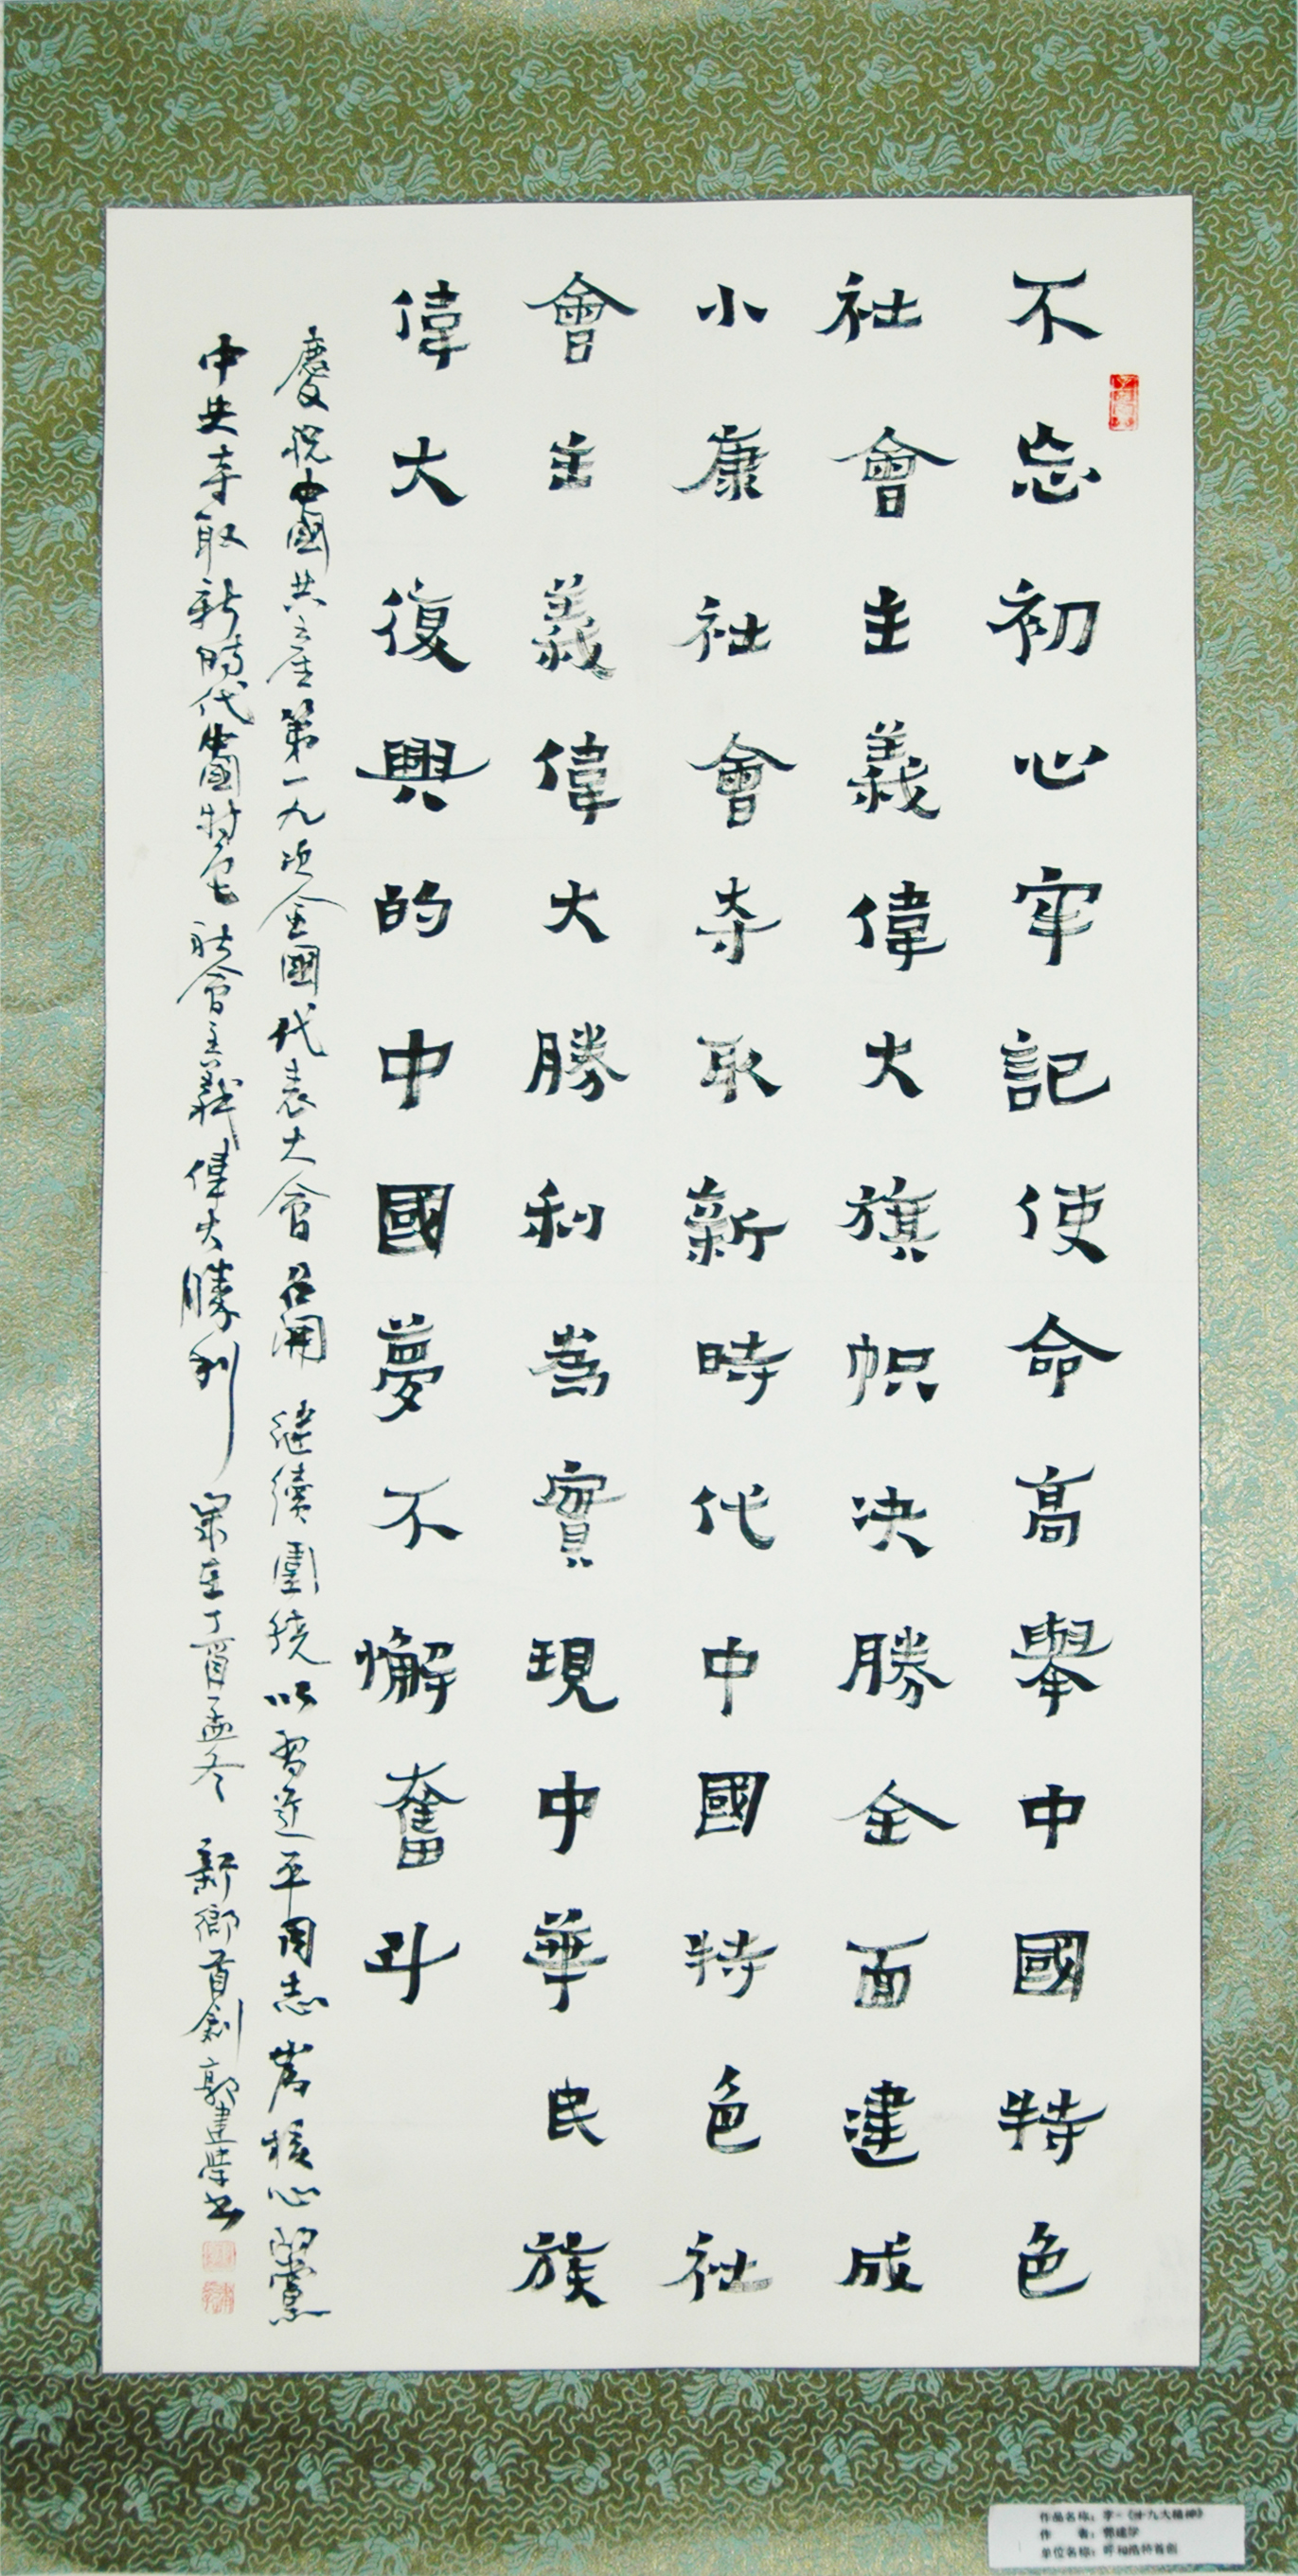 不忘初心牢記使命高舉中國特色
社會主義偉大旗帜决勝全面建成
小康社會夺取新時代中國特色社
會主義偉大勝利為實現中華民族
偉大復興的中國夢不懈奮斗
慶祝中國共產第一九次全國代表大會召開继續圍繞以習近平同志為核心的黨
中共夺取新時代中國特色社會主義偉大勝利 丁酉孟冬 新鄉首創郭建學书
作品名称：字-《十九大精神》
作 者：郭建学
单位名称：呼和浩特首创